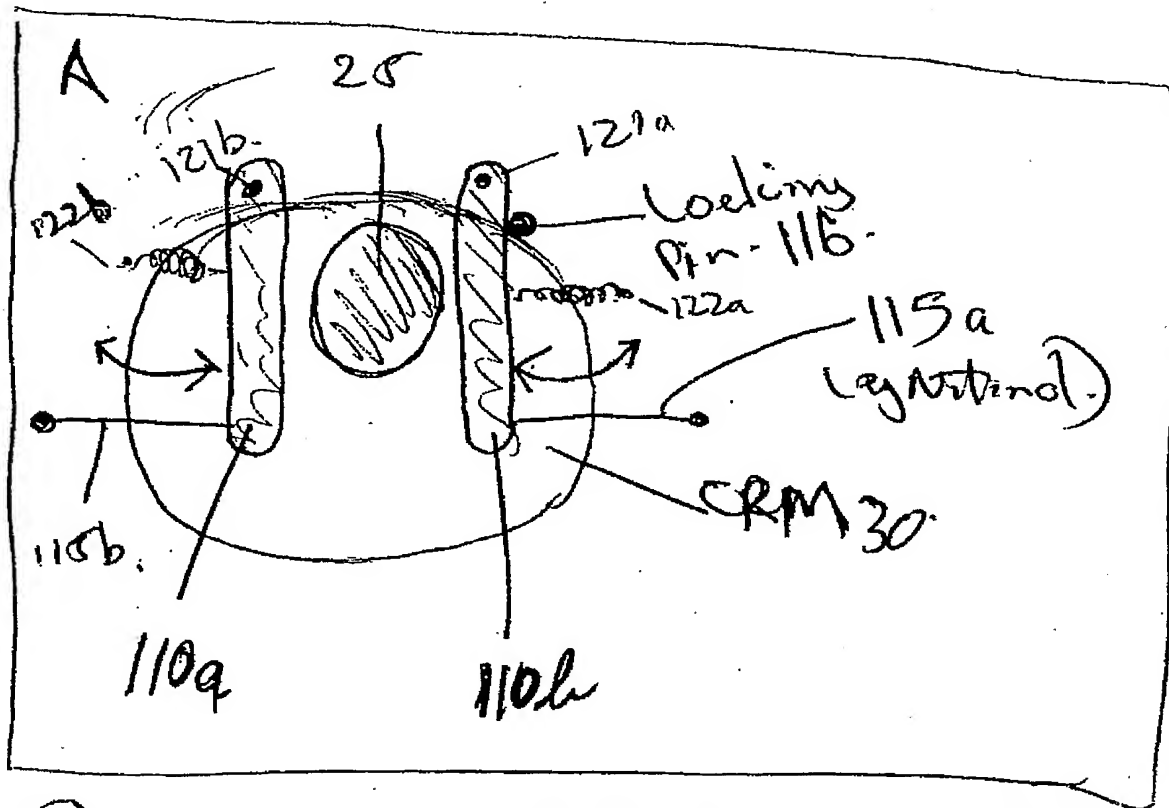 A
25
121b.
121a
122b
Locking
Pin-116.
122a
115a
(eg Nitinol.)
CRM 30.
115b.
110a
110b